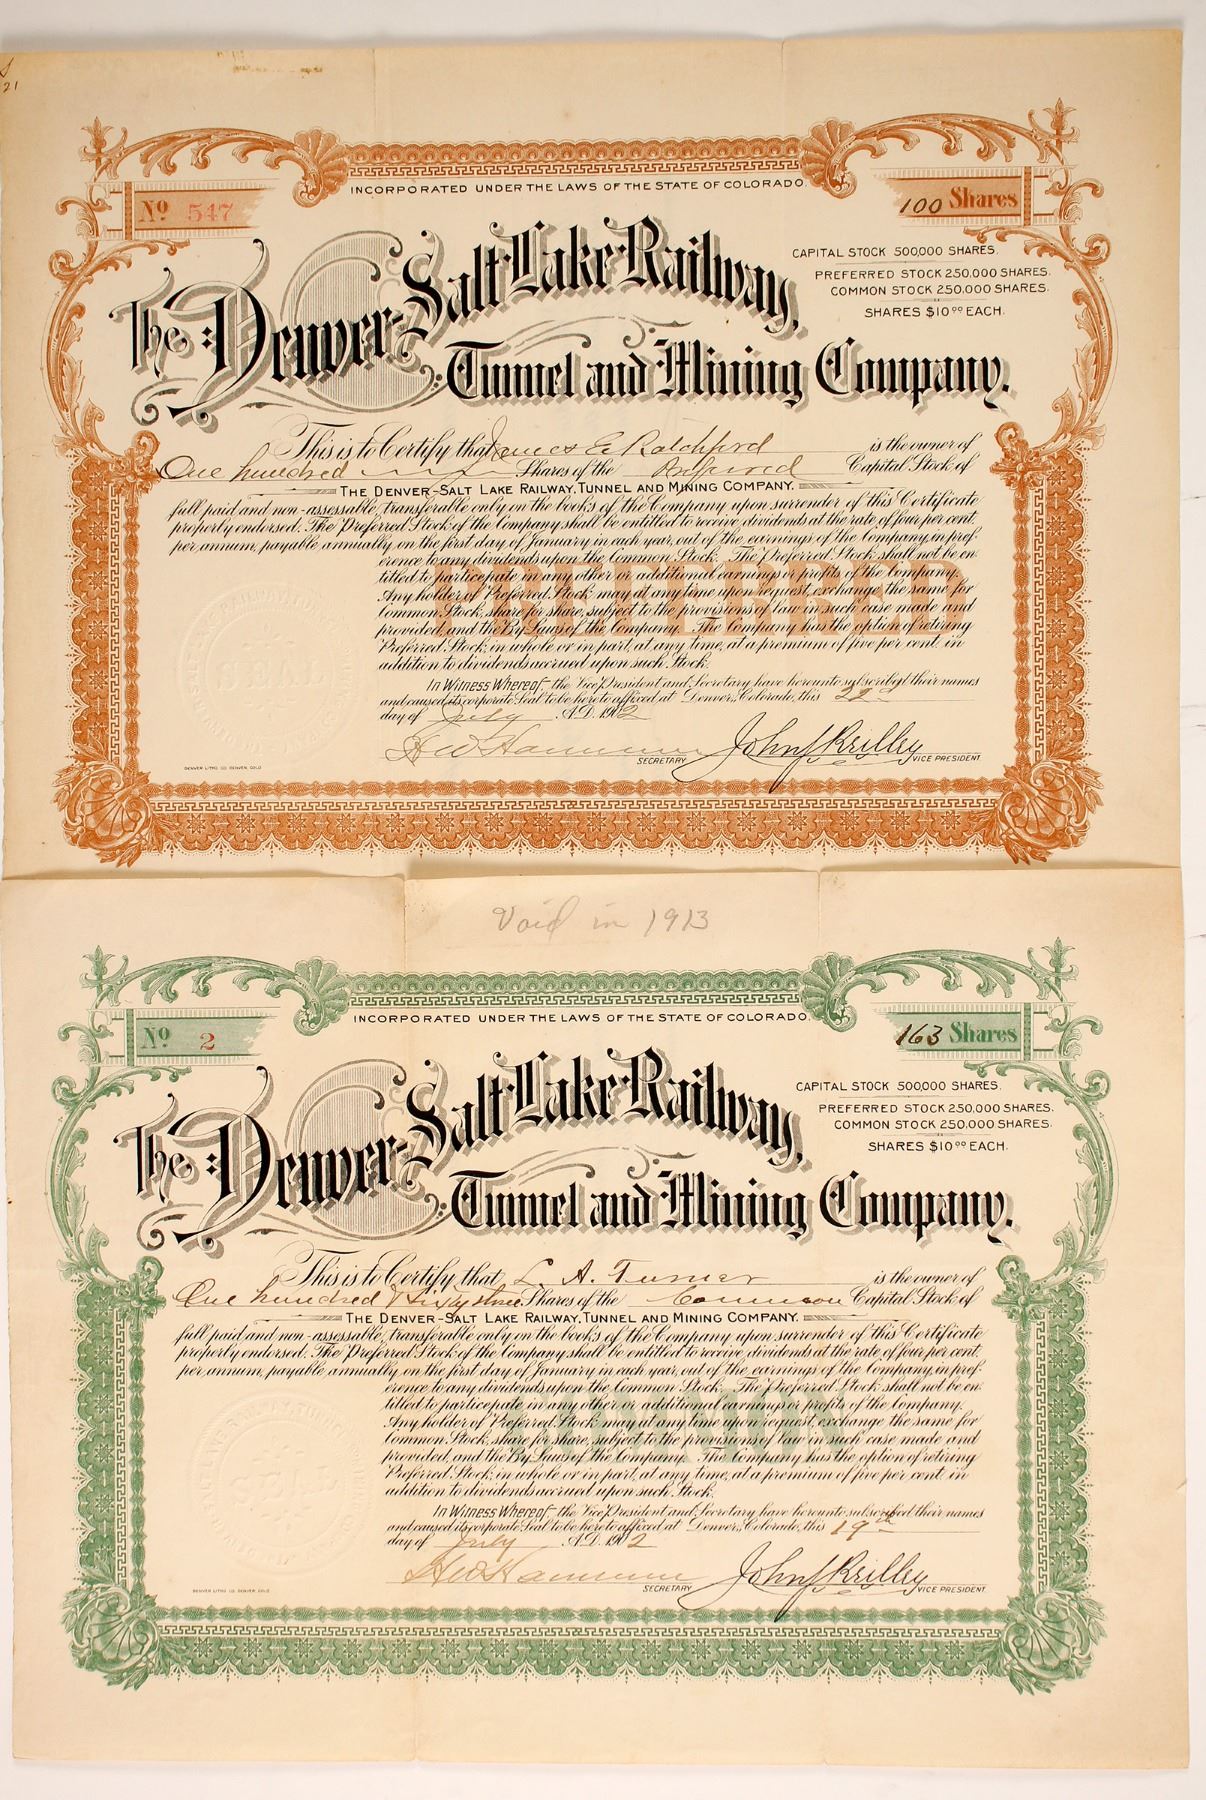 21
INCORPORATED UNDER THE LAWS OF THE STATE OF COLORADO.
No 547
100 Shares
CAPITAL STOCK 500,000 SHARES.
PREFERRED STOCK 250,000 SHARES.
COMMON STOCK 250,000 SHARES.
SHARES $10 00 EACH.
The Denver-Salt Lake Railway,
Tunnel and Mining Company.
This is to Certify that James E Ratchford is the owner of
One hundred Shares of the Preferred Capital Stock of
THE DENVER-SALT LAKE RAILWAY, TUNNEL AND MINING COMPANY.
full paid and non-assessable, transferable only on the books of the Company upon surrender of this Certificate
properly endorsed. The Preferred Stock of the Company shall be entitled to receive dividends at the rate of four per cent.
per annum, payable annually, on the first day of January in each year, out of the earnings of the Company, in pref-
erence to any dividends upon the Common Stock. The Preferred Stock shall not be en-
titled to participate in any other or additional earnings or profits of the Company.
Any holder of Preferred Stock may at any time upon request, exchange the same for
Common Stock, share for share, subject to the provisions of law in such case made and
provided, and the By Laws of the Company. The Company has the option of retiring
Preferred Stock, in whole or in part, at any time, at a premium of five per cent. in
addition to dividends accrued upon such Stock.
PREFERRED
In Witness Whereof the Vice President and Secretary have hereunto subscribed their names
and caused its corporate Seal to be hereto affixed at Denver, Colorado, this 22d
day of July A.D. 1902
SECRETARY
VICE PRESIDENT
DENVER LITHO CO DENVER, COLO
Void in 1913
INCORPORATED UNDER THE LAWS OF THE STATE OF COLORADO.
No 2
163 Shares
CAPITAL STOCK 500,000 SHARES.
PREFERRED STOCK 250,000 SHARES.
COMMON STOCK 250,000 SHARES.
SHARES $10 00 EACH.
The Denver-Salt Lake Railway,
Tunnel and Mining Company.
This is to Certify that L. A. Turner is the owner of
One hundred & sixty three Shares of the Common Capital Stock of
THE DENVER-SALT LAKE RAILWAY, TUNNEL AND MINING COMPANY.
full paid and non-assessable, transferable only on the books of the Company upon surrender of this Certificate
properly endorsed. The Preferred Stock of the Company shall be entitled to receive dividends at the rate of four per cent.
per annum, payable annually, on the first day of January in each year, out of the earnings of the Company, in pref-
erence to any dividends upon the Common Stock. The Preferred Stock shall not be en-
titled to participate in any other or additional earnings or profits of the Company.
Any holder of Preferred Stock may at any time upon request, exchange the same for
Common Stock, share for share, subject to the provisions of law in such case made and
provided, and the By Laws of the Company. The Company has the option of retiring
Preferred Stock, in whole or in part, at any time, at a premium of five per cent. in
addition to dividends accrued upon such Stock.
COMMON
In Witness Whereof the Vice President and Secretary have hereunto subscribed their names
and caused its corporate Seal to be hereto affixed at Denver, Colorado, this 19th
day of July A.D. 1902
SECRETARY
VICE PRESIDENT
DENVER LITHO CO DENVER, COLO